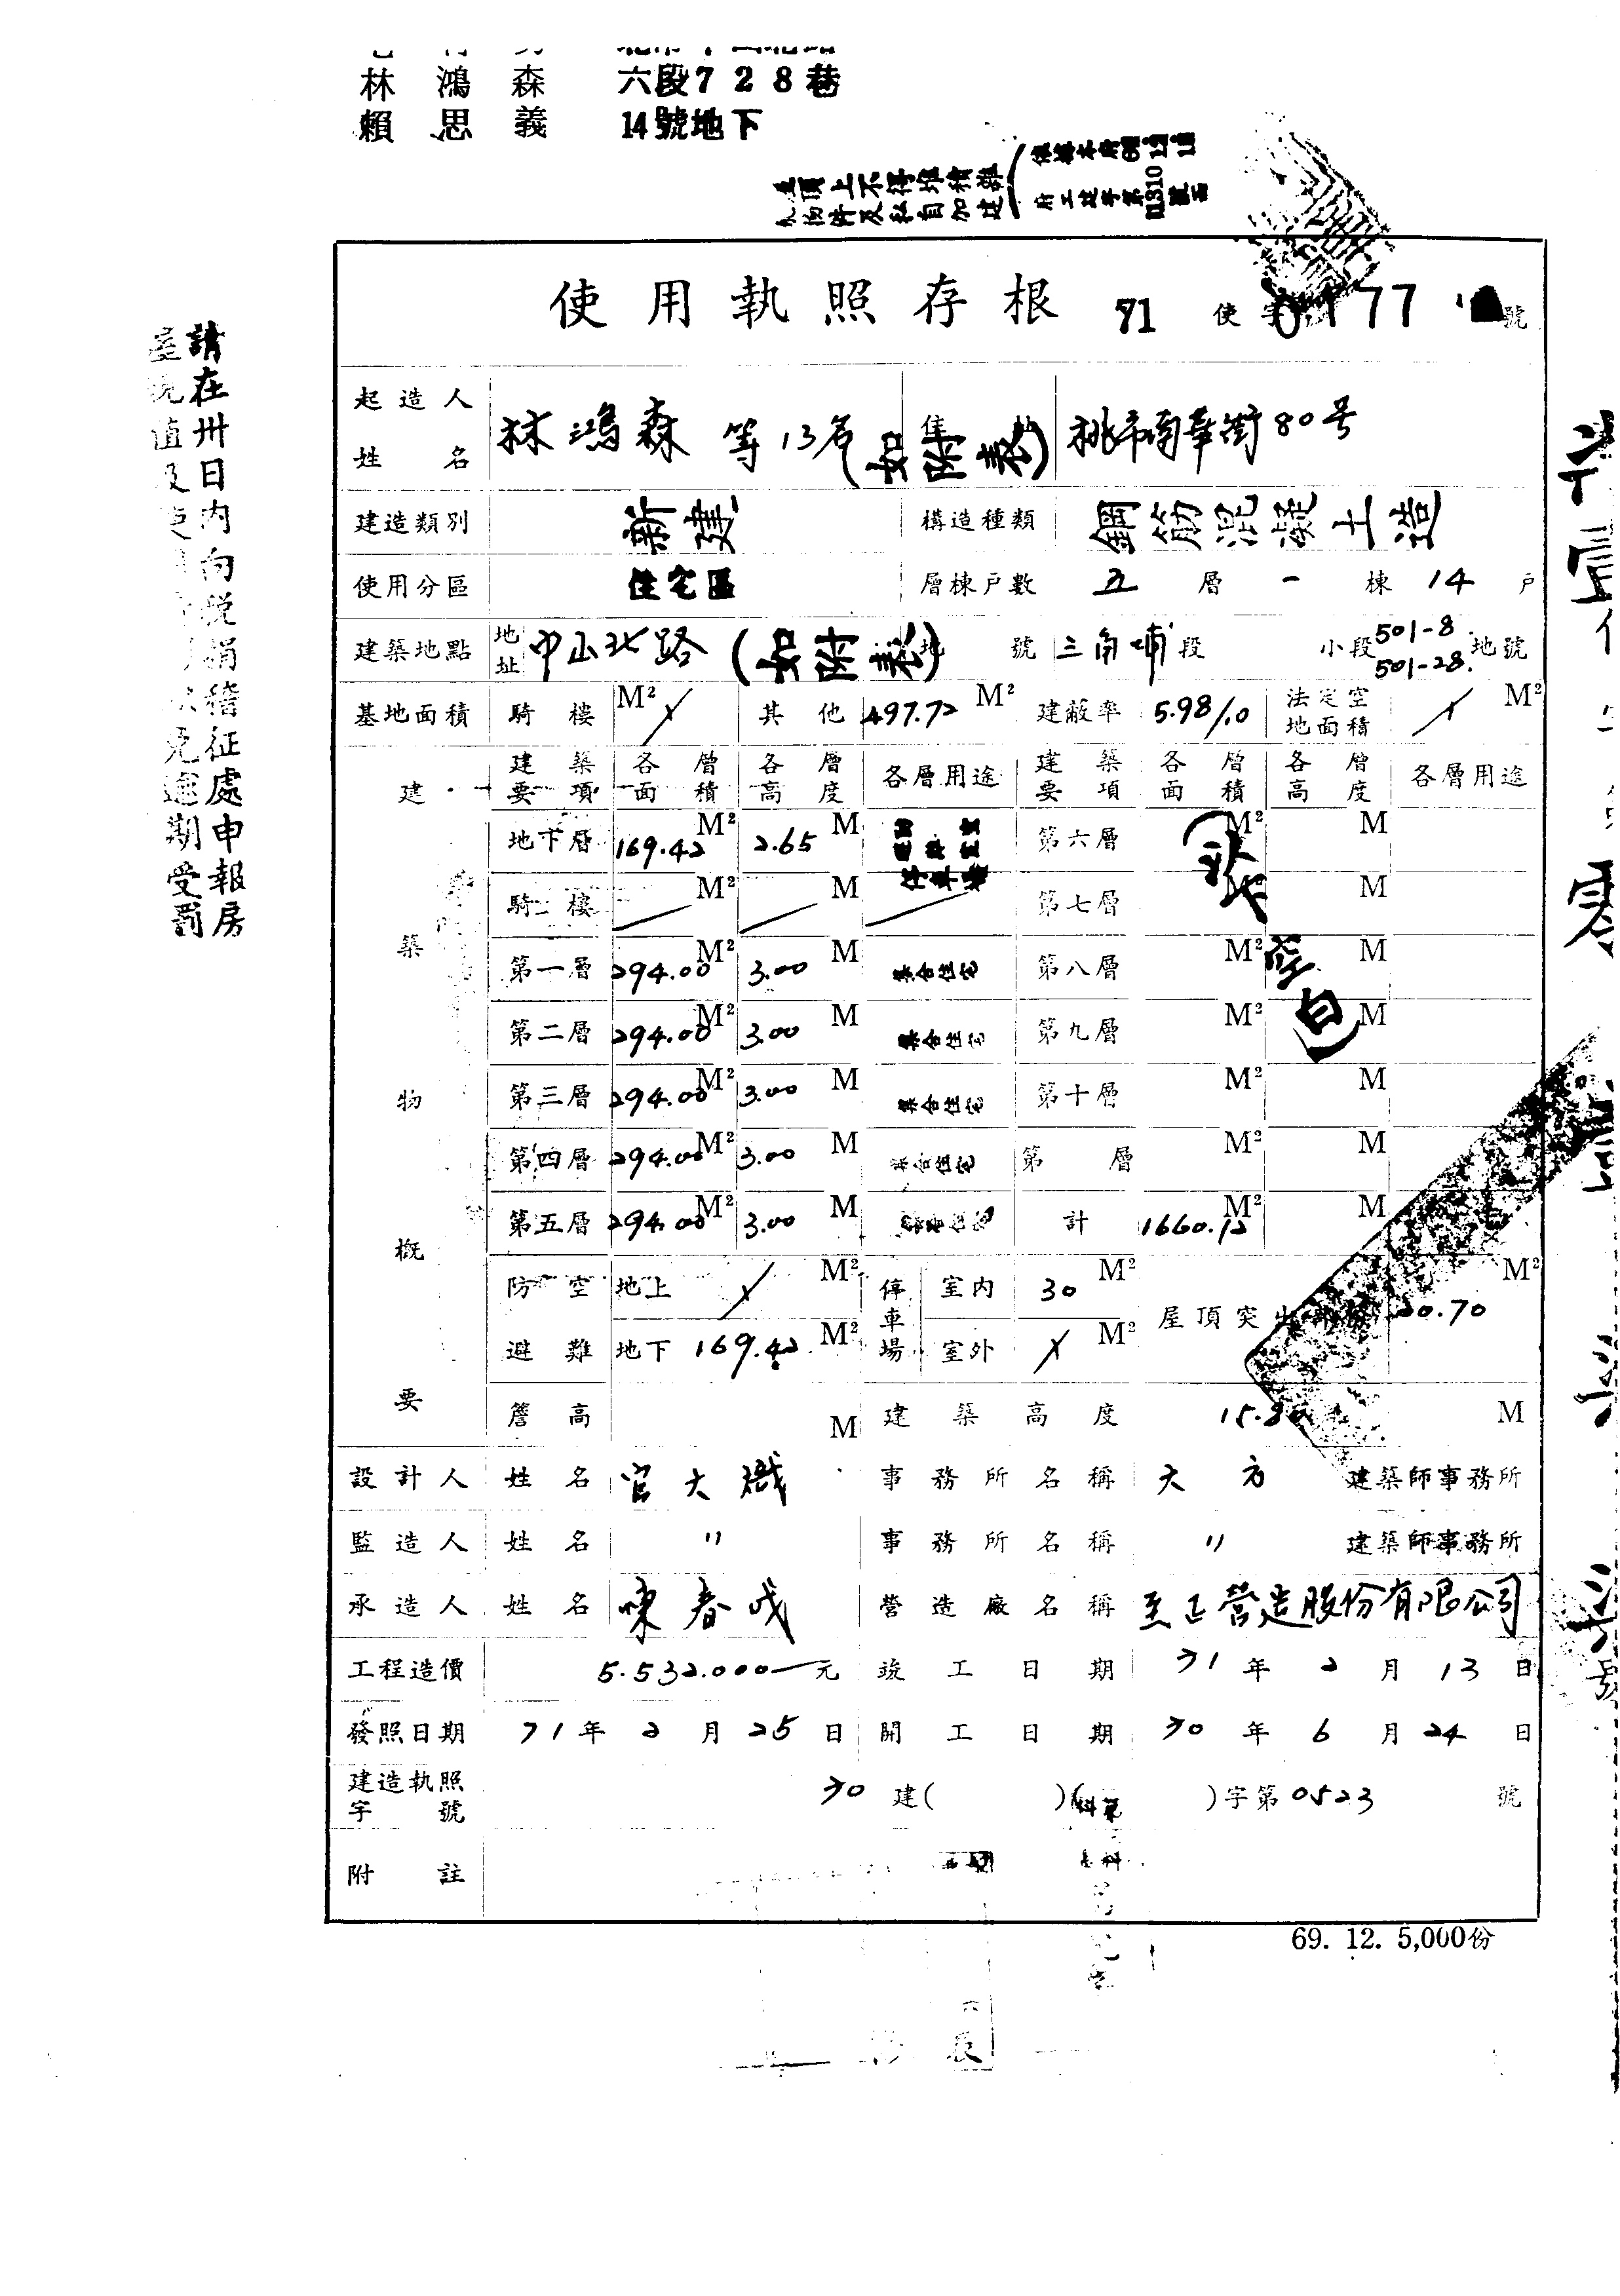 林鴻森 六段728巷
賴思義 14號地下
屋頂上不得堆積雜
物件及私自加建
使用執照存根 71 使字 0177 號
請在卅日內向稅捐稽征處申報房
屋現值及使用 以免逾期受罰
起造人姓名 林鴻森 等13名(如附表) 住址 桃市南華街80号
建造類別 新建 構造種類 鋼筋混凝土造
使用分區 住宅區 層棟戶數 五層一棟14戶
建築地點 地址 中山北路(如附表) 地號 三角埔段 小段 501-8 501-28 地號
基地面積 騎樓 M² 其他 497.72 M² 建蔽率 5.98/10 法定空地面積 M²
建築物概要
建築要項 各層面積 各層高度 各層用途 建築要項 各層面積 各層高度 各層用途
地下層 169.42 M² 2.65 M 停車場 第六層 M² M
騎樓 M² M 第七層 M² M
第一層 294.00 M² 3.00 M 集合住宅 第八層 M² M
第二層 294.00 M² 3.00 M 集合住宅 第九層 M² M
第三層 294.00 M² 3.00 M 集合住宅 第十層 M² M
第四層 294.00 M² 3.00 M 集合住宅 第 層 M² M
第五層 294.00 M² 3.00 M 計 1660.12 M² M
(以下空白)
防空避難 地上 M² 停車場 室內 30 M² 屋頂突出 20.70 M²
地下 169.42 M² 室外 M²
簷高 M 建築高度 15.80 M
設計人 姓名 官大 事務所名稱 大方 建築師事務所
監造人 姓名 〃 事務所名稱 〃 建築師事務所
承造人 姓名 陳春成 營造廠名稱 至正營造股份有限公司
工程造價 5.532.000 元 竣工日期 71年2月13日
發照日期 71年2月25日 開工日期 70年6月24日
建造執照字號 70 建( )( )字第0523號
附註
69. 12. 5,000份